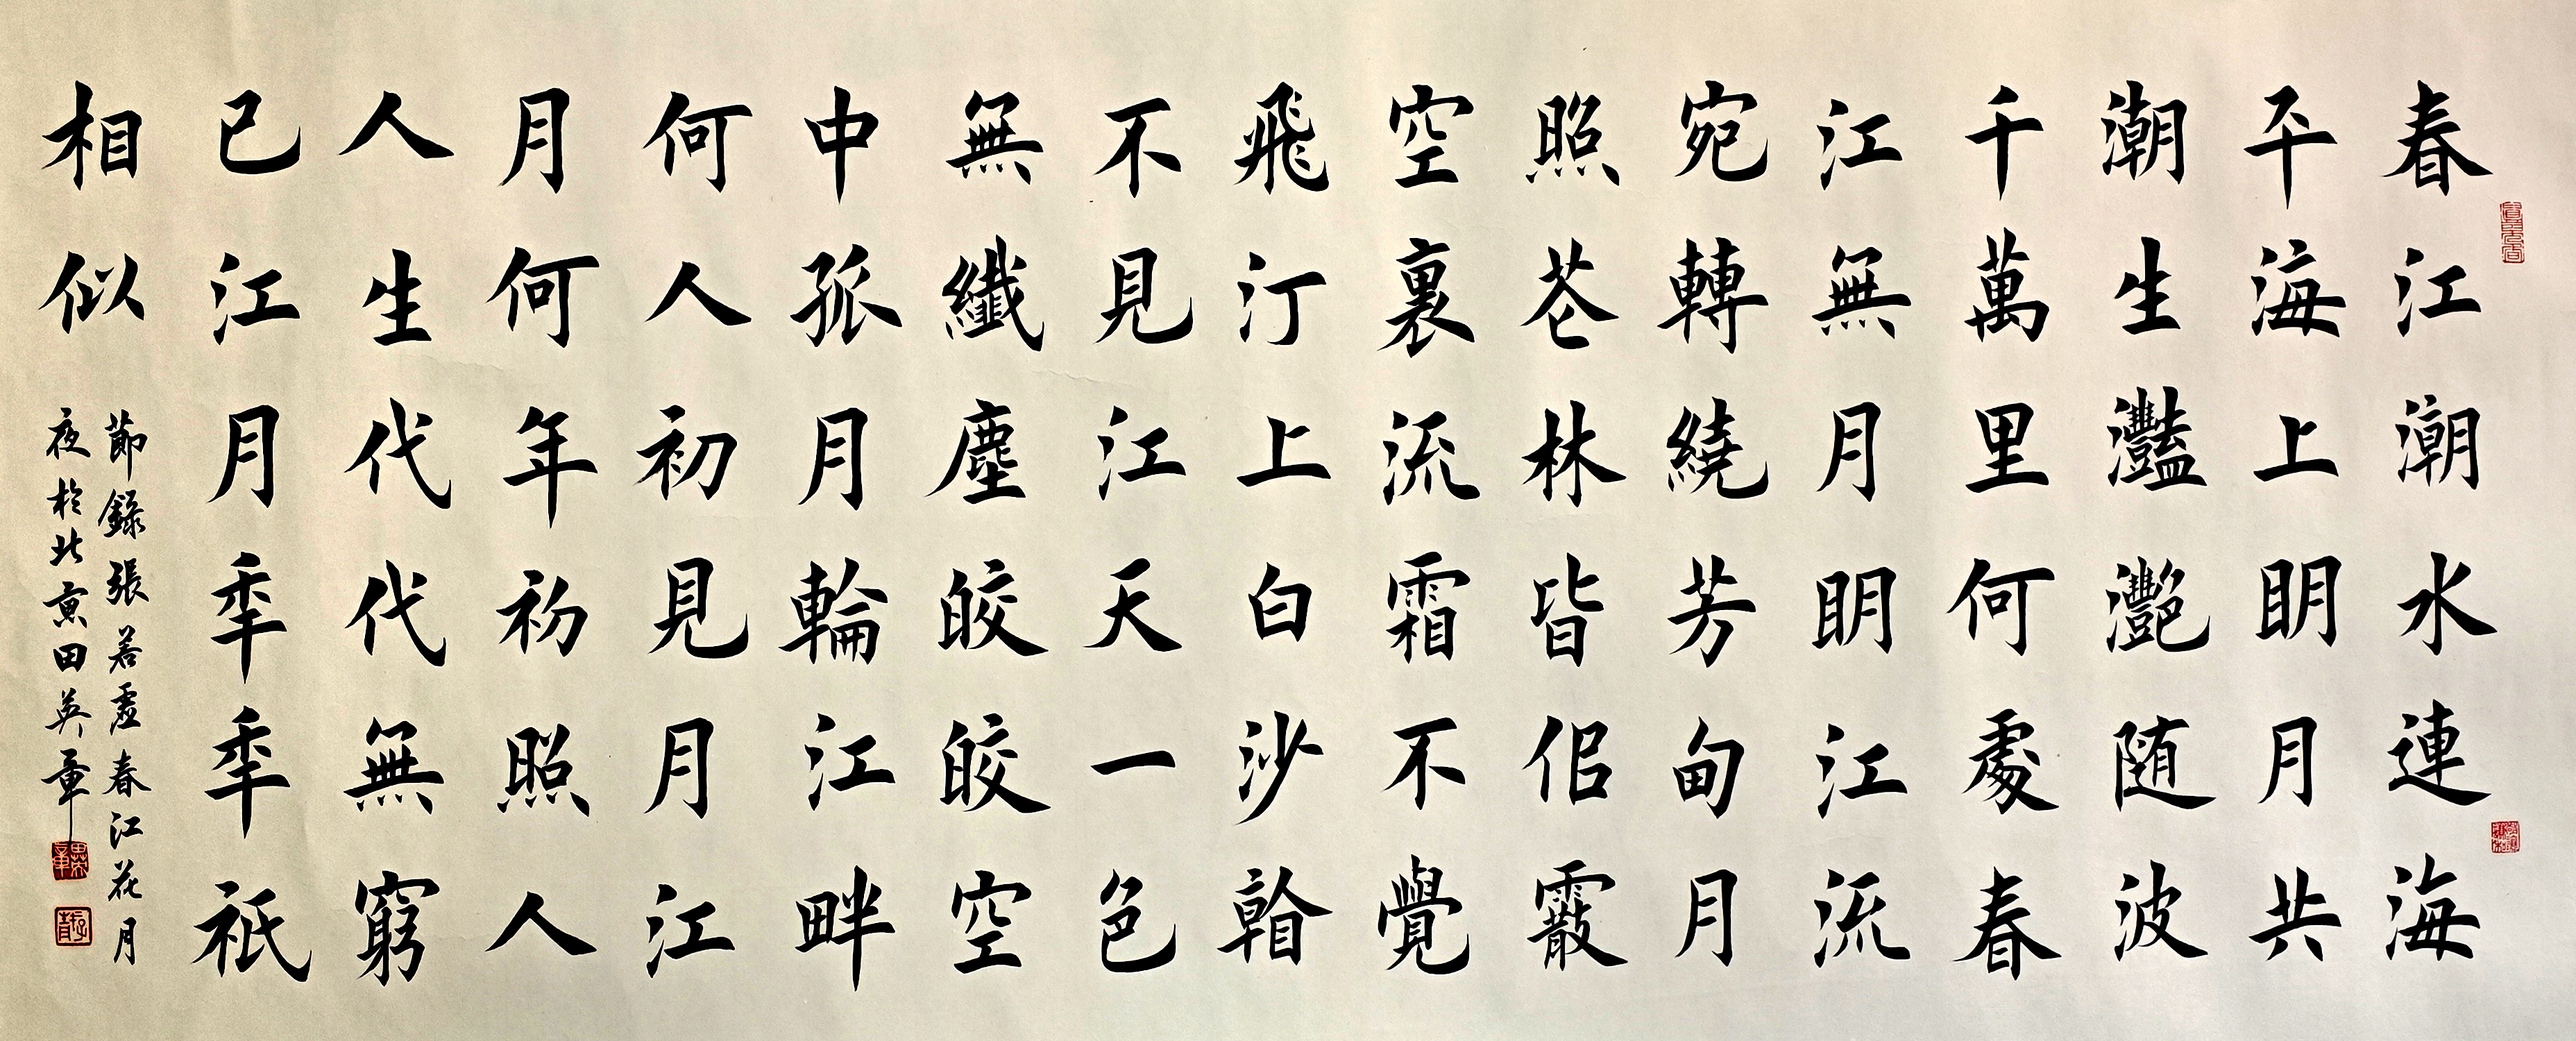 春江潮水連海
平海上眀月共
潮生灩灔随波
千萬里何處春
江無月眀江流
宛轉繞芳甸月
照芲林皆佀霰
空裏流霜不覺
飛汀上白沙看
不見江天一色
無纖塵皎皎空
中孤月輪江畔
何人初見月江
月何年初照人
人生代代無窮
已江月秊秊祇
相似
節錄張若虛春江花月
夜於北京田英章